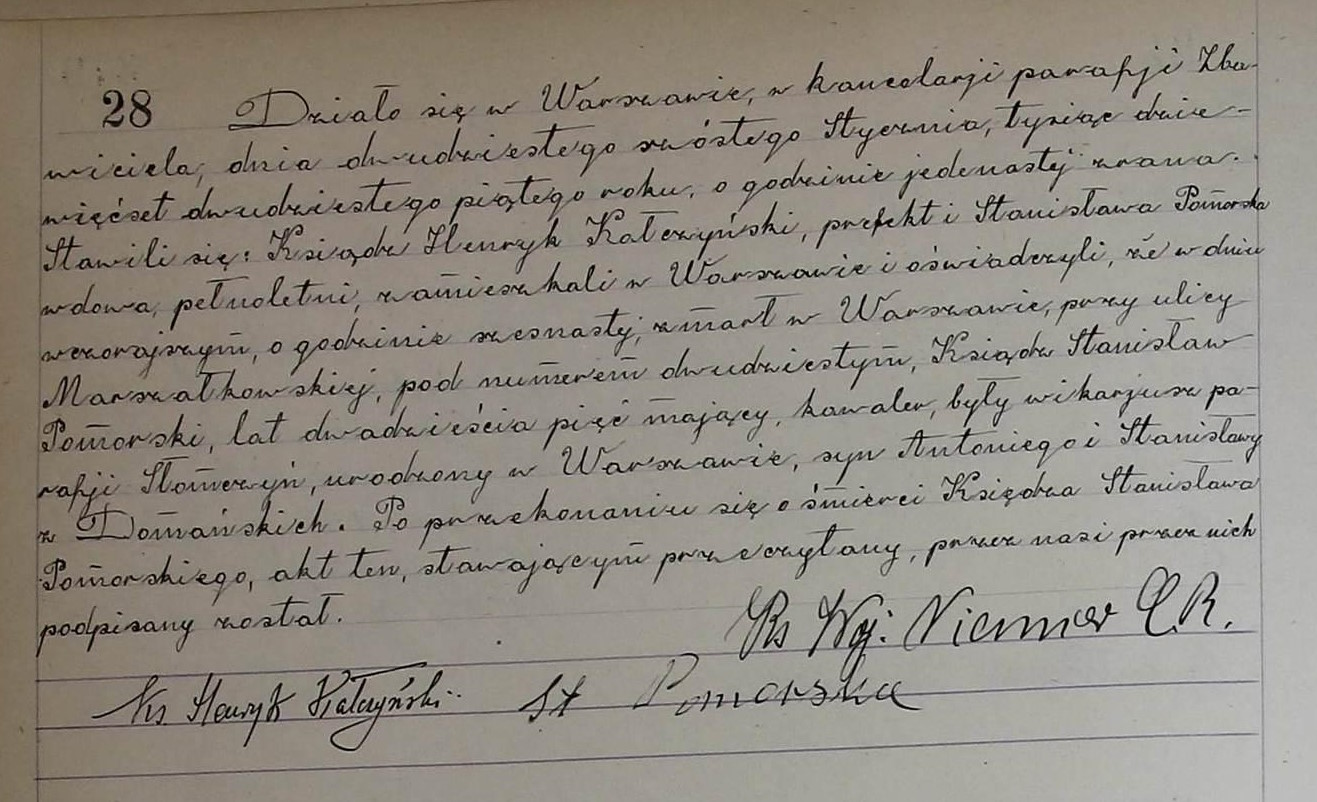 28 Działo się w Warszawie, w kancelarji parafji Zba-
wiciela, dnia dwudziestego szóstego Stycznia, tysiąc dzie-
więćset dwudziestego piątego roku, o godzinie jedenastej zrana.
Stawili się: Ksiądz Henryk Kałczyński, prefekt i Stanisława Pomorska
wdowa, pełnoletni, zamieszkali w Warszawie i oświadczyli, że w dniu
wczorajszym, o godzinie szesnastej, zmarł w Warszawie, przy ulicy
Marszałkowskiej, pod numerem dwudziestym, Ksiądz Stanisław
Pomorski, lat dwadzieścia pięć mający, kawaler, były wikarjusz pa-
rafji Słomczyn, urodzony w Warszawie, syn Antoniego i Stanisławy
z Domańskich. Po przekonaniu się o śmierci Księdza Stanisława
Pomorskiego, akt ten, stawającym przeczytany, przez nas i przez nich
podpisany został.
Ks Woj. C.R.
Ks Henryk Kałczyński St Pomorska